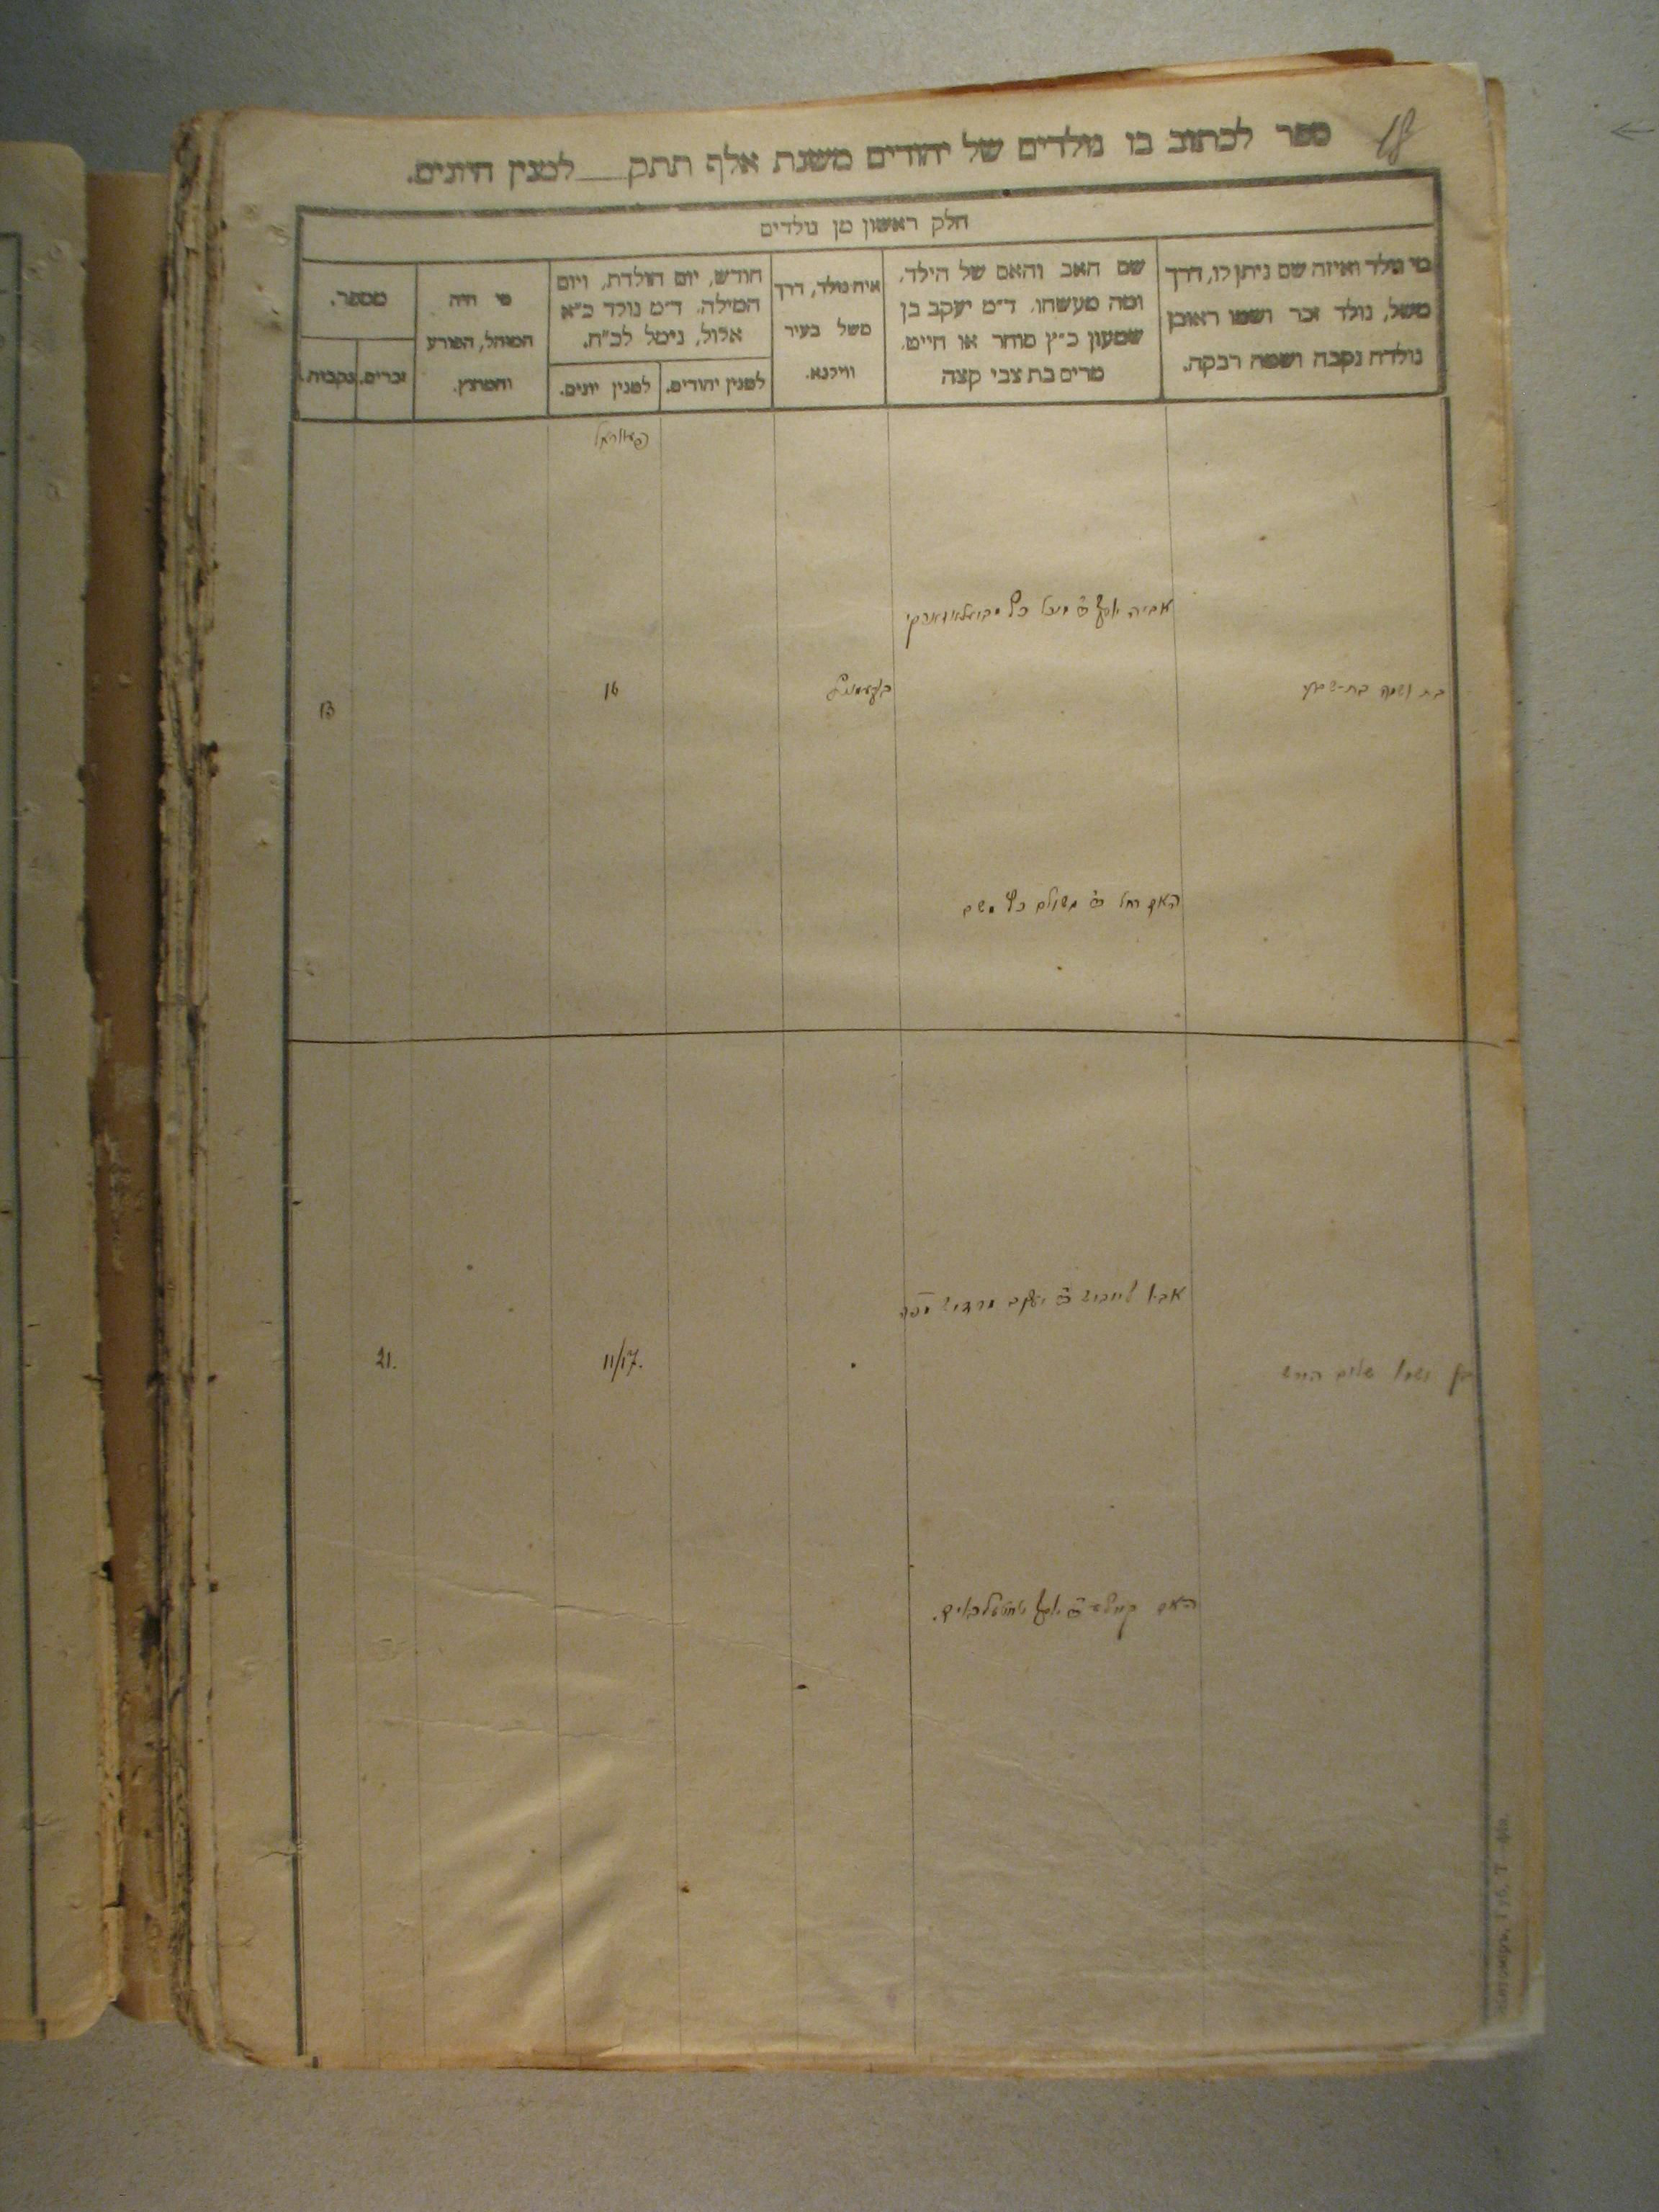 18
ספר לכתוב בו נולדים של יהודים משנת אלף תתק___למנין היונים.
חלק ראשון מן נולדים
מי נולד ואיזה שם ניתן לו, דרך
משל, נולד זכר ושמו ראובן
נולדה נקבה ושמה רבקה.
שם האב והאם של הילד,
ומה מעשהו, ד״מ יעקב בן
שמעון כ״ץ סוחר או חייט,
מרים בת צבי קצה
איה נולד, דרך
משל בעיר
ווילנא.
חודש, יום הולדת, ויום
המילה, ד״מ נולד כ״א
אלול, נימל לכ״ח.
למנין יהודים.
למנין יונים.
מי היה
המוהל, הפורע
והמוצץ.
מספר.
זכרים.
נקבות.
פעווראל
אביה יוסף ב״ר מיכל כ״ץ
בת ושמה בת-שבע
16
13
האם רחל ב״ר משולם כ״ץ משם
אביו לייביש ב״ר יעקב
בן ושמו שלום הירש
11/17.
21.
האם ב״ר יוסף